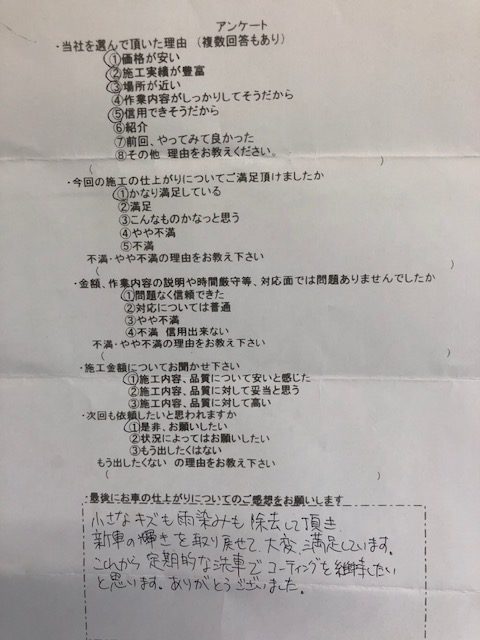 アンケート
・当社を選んで頂いた理由 (複数回答もあり)
①価格が安い
②施工実績が豊富
③場所が近い
④作業内容がしっかりしてそうだから
⑤信用できそうだから
⑥紹介
⑦前回、やってみて良かった
⑧その他 理由をお教えください。
( )
・今回の施工の仕上がりについてご満足頂けましたか
①かなり満足している
②満足
③こんなものかなっと思う
④やや不満
⑤不満
不満・やや不満の理由をお教え下さい
( )
・金額、作業内容の説明や時間厳守等、対応面では問題ありませんでしたか
①問題なく信頼できた
②対応については普通
③やや不満
④不満 信用出来ない
不満・やや不満の理由をお教え下さい
( )
・施工金額についてお聞かせ下さい
①施工内容、品質について安いと感じた
②施工内容、品質に対して妥当と思う
③施工内容、品質に対して高い
・次回も依頼したいと思われますか
①是非、お願いしたい
②状況によってはお願いしたい
③もう出したくはない
もう出したくない の理由をお教え下さい
( )
・最後にお車の仕上がりについてのご感想をお願いします
小さなキズも雨染みも除去して頂き
新車の輝きを取り戻せて、大変、満足しています。
これから定期的な洗車でコーティングを維持したい
と思います。ありがとうございました。